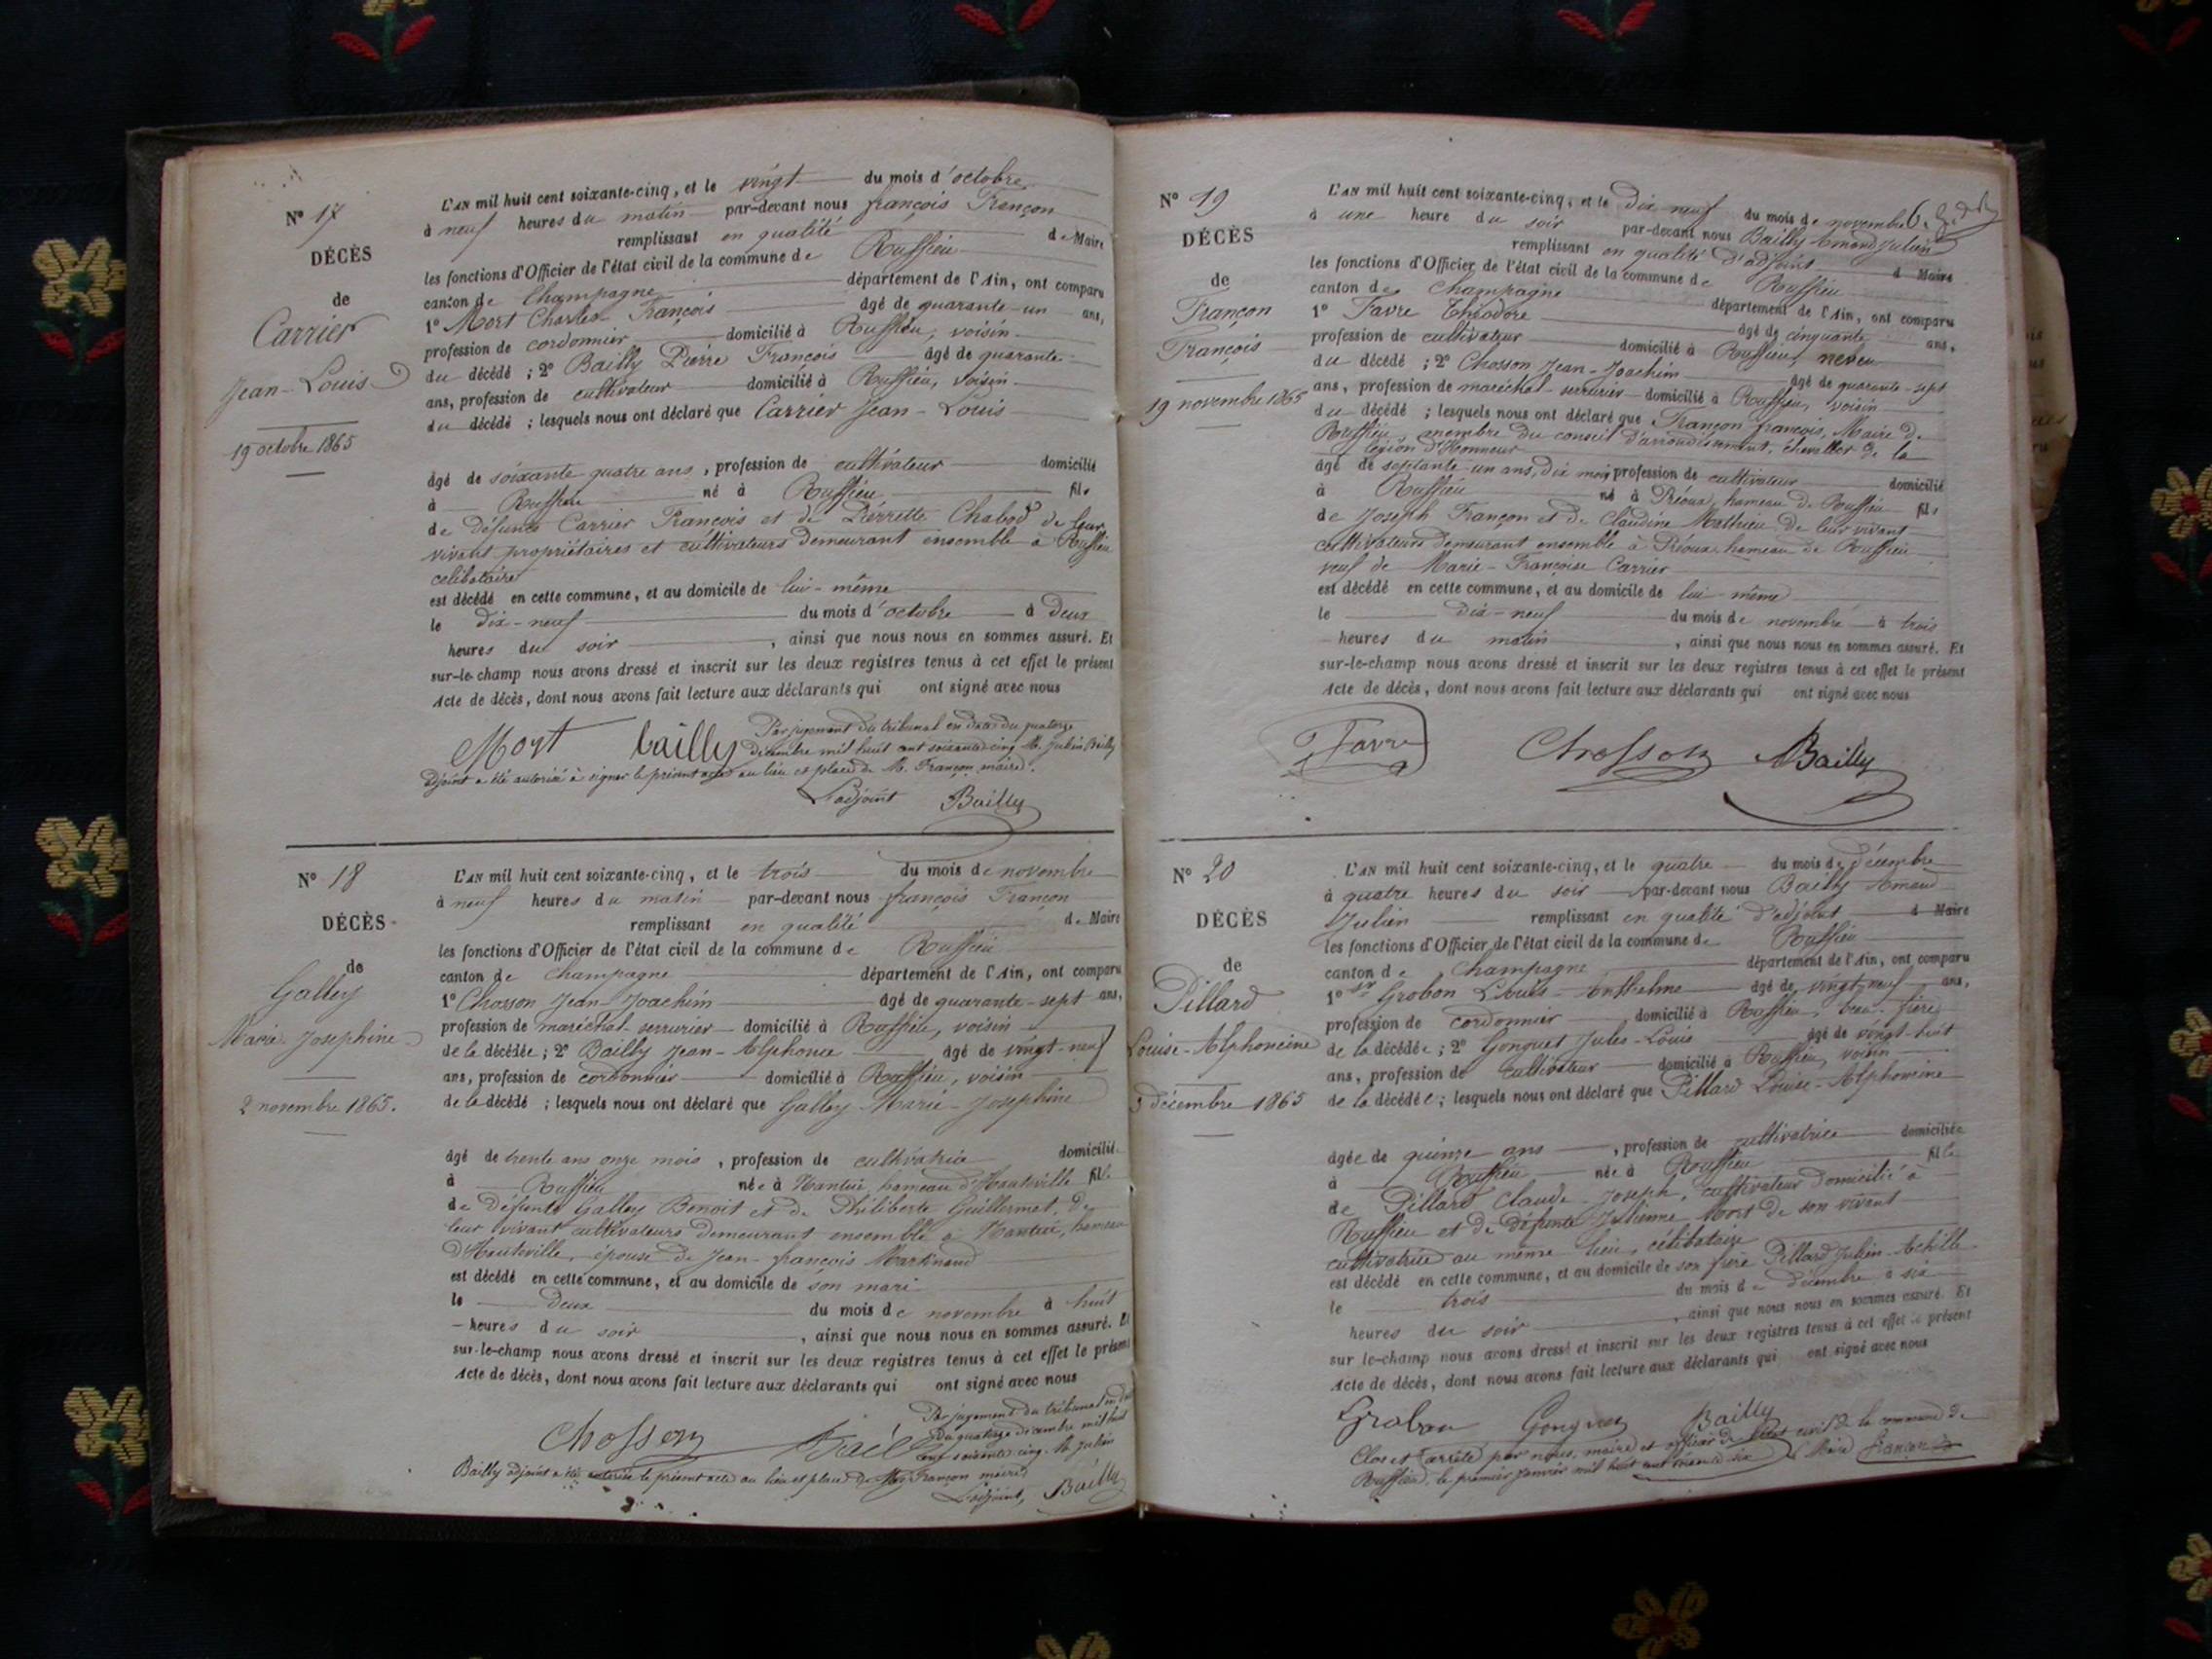 N° 17
DÉCÈS
de
Carrier
Jean-Louis
19 octobre 1865
L'AN mil huit cent soixante-cinq, et le vingt du mois d'octobre
à neuf heures du matin par-devant nous françois Françon
remplissant en qualité de Maire
les fonctions d'Officier de l'état civil de la commune de Ruffieu
canton de Champagne département de l'Ain, ont comparu
1° Mort Charles-François âgé de quarante-un ans,
profession de cordonnier domicilié à Ruffieu, voisin
du décédé ; 2° Bailly Pierre François âgé de quarante
ans, profession de cultivateur domicilié à Ruffieu, voisin
du décédé ; lesquels nous ont déclaré que Carrier Jean-Louis
âgé de soixante quatre ans, profession de cultivateur domicilié
à Ruffieu né à Ruffieu fils
de défunts Carrier François et de Pierrette Chabod de leur
vivant propriétaires et cultivateurs demeurant ensemble à Ruffieu
celibataire
est décédé en cette commune, et au domicile de lui-même
le dix-neuf du mois d'octobre à deux
heures du soir, ainsi que nous nous en sommes assuré. Et
sur-le-champ nous avons dressé et inscrit sur les deux registres tenus à cet effet le présent
Acte de décès, dont nous avons fait lecture aux déclarants qui ont signé avec nous
Mort bailly Par jugement du tribunal en date du quatorze
décembre mil huit cent soixante cinq M. Julien Bailly
adjoint a été autorisé à signer le présent acte au lieu et place de M. Françon maire.
L'adjoint Bailly
N° 18
DÉCÈS
de
Galley
Marie-Josephine
2 novembre 1865.
L'AN mil huit cent soixante-cinq, et le trois du mois de novembre
à neuf heures du matin par-devant nous françois Françon
remplissant en qualité de Maire
les fonctions d'Officier de l'état civil de la commune de Ruffieu
canton de Champagne département de l'Ain, ont comparu
1° Chosson Jean-Joachim âgé de quarante-sept ans,
profession de maréchal-serrurier domicilié à Ruffieu, voisin
de la décédée ; 2° Bailly Jean-Alphonse âgé de vingt-neuf
ans, profession de cordonnier domicilié à Ruffieu, voisin
de la décédé ; lesquels nous ont déclaré que Galley Marie-Josephine
âgé de trente ans onze mois, profession de cultivatrice domicilié
à Ruffieu née à Nantuy, hameau d'Hauteville fille
de défunts Galley Benoit et de Philiberte Guillermet, de
leur vivant cultivateurs demeurant ensemble à Nantuy, hameau
d'Hauteville, épouse de Jean-françois Martinand
est décédé en cette commune, et au domicile de son mari
le deux du mois de novembre à huit
heures du soir, ainsi que nous nous en sommes assuré. Et
sur-le-champ nous avons dressé et inscrit sur les deux registres tenus à cet effet le présent
Acte de décès, dont nous avons fait lecture aux déclarants qui ont signé avec nous
Chosson Par jugement du tribunal en date
du quatorze décembre mil huit
cent soixante-cinq M. Julien
Bailly adjoint a été autorisé le présent acte au lieu et place de Françon maire
L'adjoint, Bailly
N° 19
DÉCÈS
de
Françon
François
19 novembre 1865
L'AN mil huit cent soixante-cinq, et le dix neuf du mois de novembre 6.
à une heure du soir par-devant nous Bailly Amand Julien
remplissant en qualité d'adjoint d Maire
les fonctions d'Officier de l'état civil de la commune de Ruffieu
canton de Champagne département de l'Ain, ont comparu
1° Favre Théodore âgé de cinquante ans,
profession de cultivateur domicilié à Ruffieu, neveu
du décédé ; 2° Chosson Jean-Joachim âgé de quarante-sept
ans, profession de maréchal-serrurier domicilié à Ruffieu, voisin
du décédé ; lesquels nous ont déclaré que Françon françois, Maire de
Ruffieu, membre du conseil d'arrondissement, chevalier de la
légion d'Honneur
âgé de septante-un ans, dix mois profession de cultivateur domicilié
à Ruffieu né à Préoux, hameau de Ruffieu fils
de Joseph Françon et de Claudine Mathieu de leur vivant
cultivateurs demeurant ensemble à Préoux, hameau de Ruffieu
veuf de Marie-Françoise Carrier
est décédé en cette commune, et au domicile de lui-même
le dix-neuf du mois de novembre à trois
heures du matin, ainsi que nous nous en sommes assuré. Et
sur-le-champ nous avons dressé et inscrit sur les deux registres tenus à cet effet le présent
Acte de décès, dont nous avons fait lecture aux déclarants qui ont signé avec nous
Favre Chosson Bailly
N° 20
DÉCÈS
de
Pillard
Louise-Alphonsine
3 décembre 1865
L'AN mil huit cent soixante-cinq, et le quatre du mois de décembre
à quatre heures du soir par-devant nous Bailly Amand
Julien remplissant en qualité d'adjoint d Maire
les fonctions d'Officier de l'état civil de la commune de Ruffieu
canton de Champagne département de l'Ain, ont comparu
1° Grobon Louis-Anthelme âgé de vingt-neuf ans,
profession de cordonnier domicilié à Ruffieu, beau-frère
de la décédée ; 2° Gonguet Jules-Louis âgé de vingt-huit
ans, profession de cultivateur domicilié à Ruffieu, voisin
de la décédée ; lesquels nous ont déclaré que Pillard Louise-Alphonsine
âgée de quinze ans, profession de cultivatrice domiciliée
à Ruffieu née à Ruffieu fille
de Pillard Claude-Joseph, cultivateur domicilié à
Ruffieu et de défunte Julienne Mort de son vivant
cultivatrice au même lieu, célibataire
est décédé en cette commune, et au domicile de son frère Pillard Julien-Achille
le trois du mois de décembre à six
heures du soir, ainsi que nous nous en sommes assuré. Et
sur le-champ nous avons dressé et inscrit sur les deux registres tenus à cet effet le présent
Acte de décès, dont nous avons fait lecture aux déclarants qui ont signé avec nous
Grobon Bailly
Clos et arrêté par nous, maire et officier de l'état civil de la commune de
Ruffieu, le premier Janvier mil huit cent soixante six Le Maire Françon